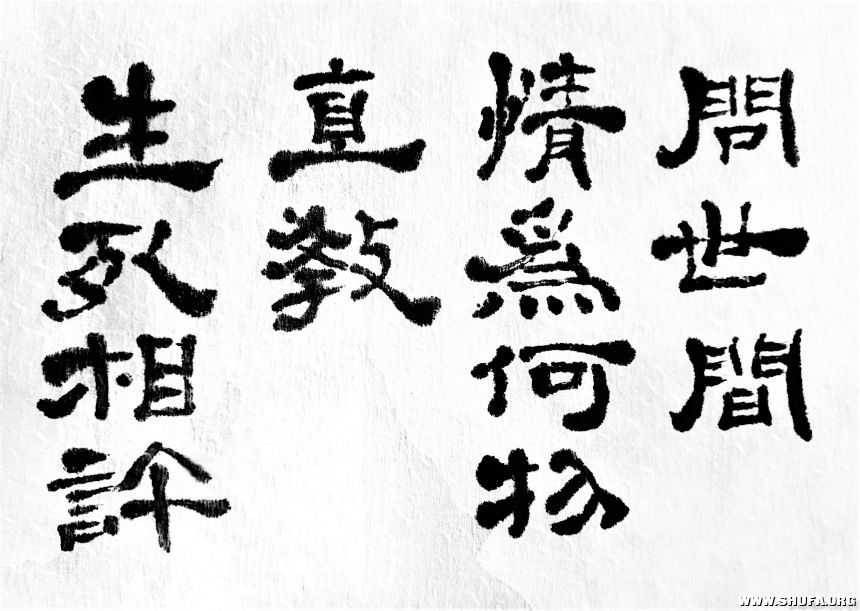 問世間
情爲何物
直教
生死相許
WWW.SHUFA.ORG